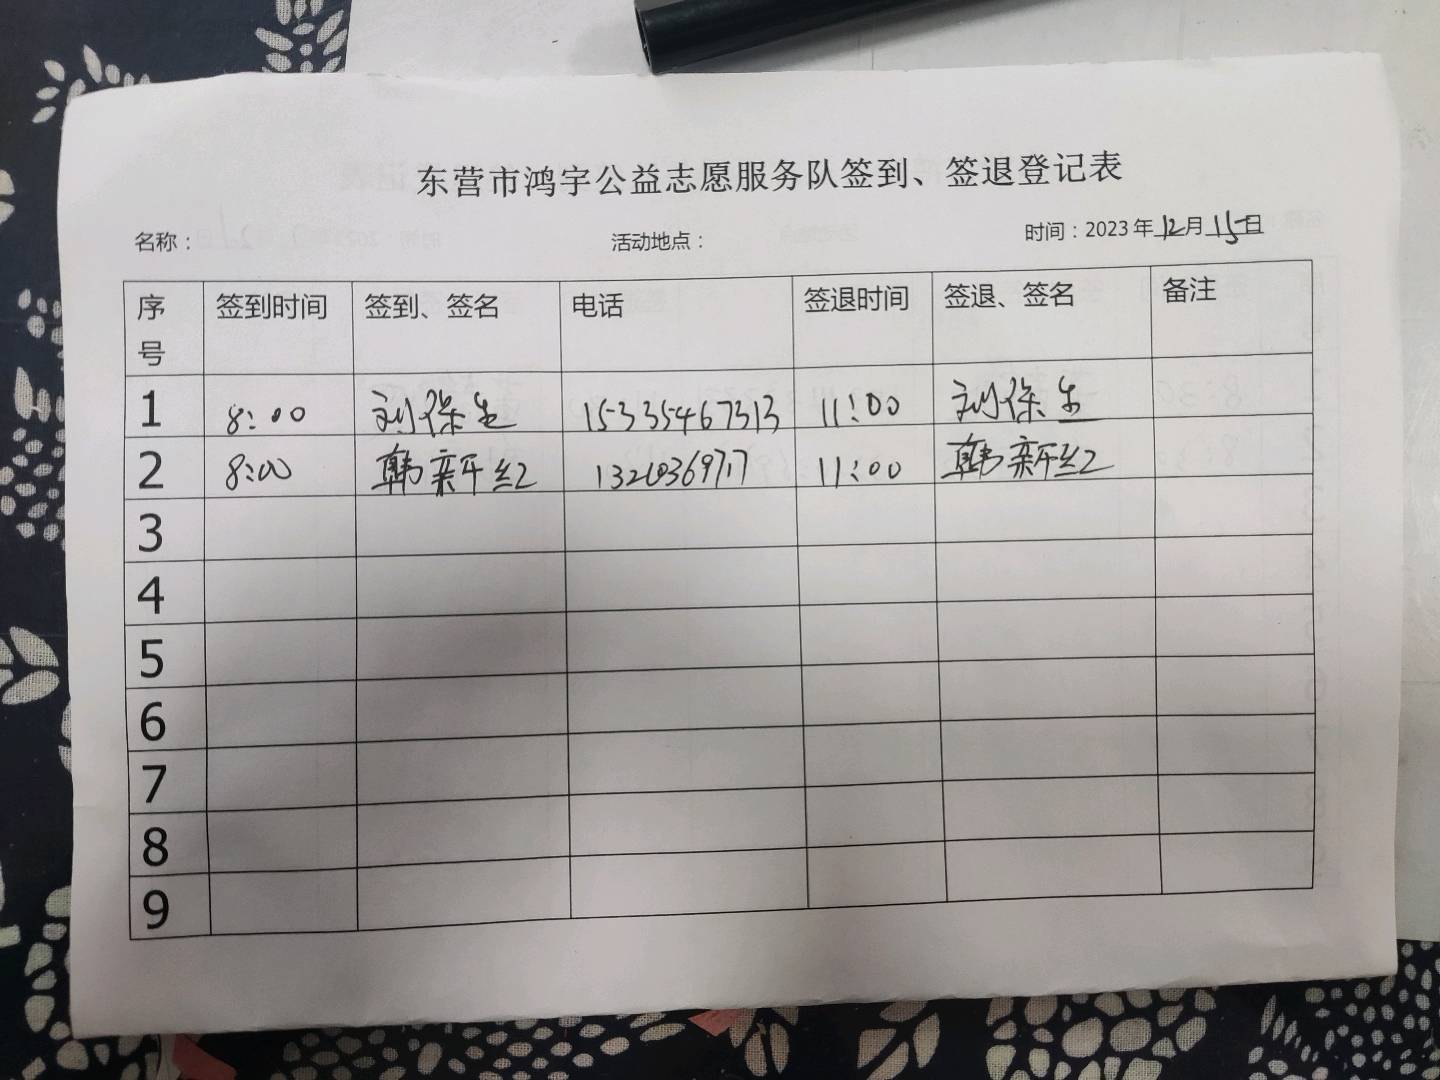 东营市鸿宇公益志愿服务队签到、签退登记表
名称： 活动地点： 时间：2023年12月15日
序号 签到时间 签到、签名 电话 签退时间 签退、签名 备注
1 8:00 刘保生 15335467313 11:00 刘保生
2 8:00 韩新红 11:00 韩新红
3
4
5
6
7
8
9